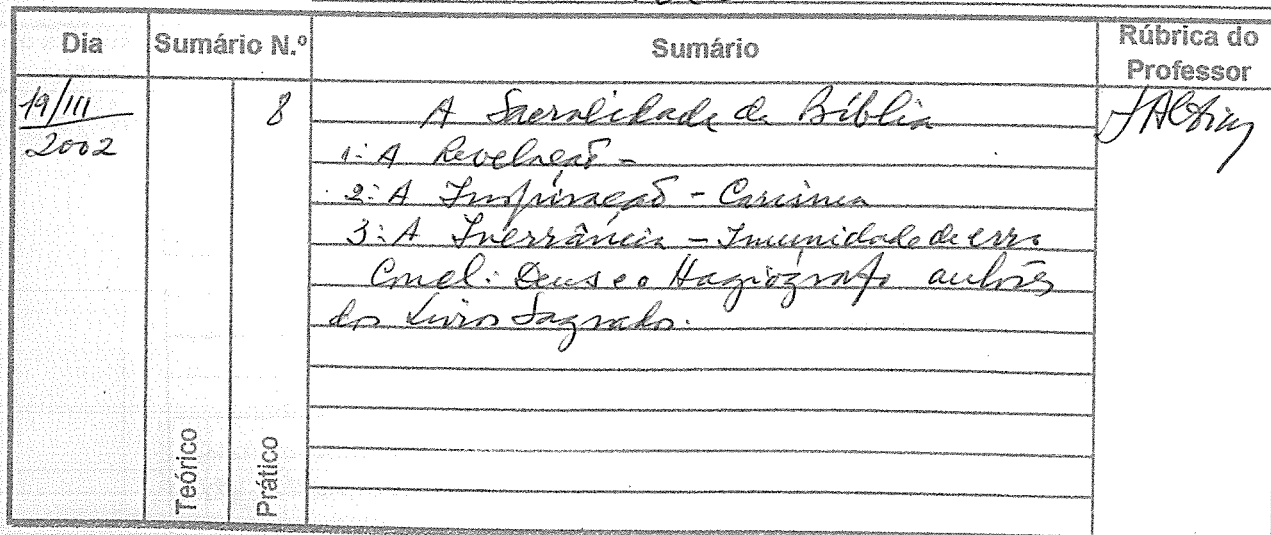 Dia Sumário N.º Sumário Rúbrica do Professor
19/III
2002
8
A Sacralidade da Bíblia
1: A Revelação -
2: A Inspiração - Carisma
3: A Inerrância - Imunidade de erro
Concl: Deus e o Hagiógrafo autores
dos Livros Sagrados.
Teórico
Prático